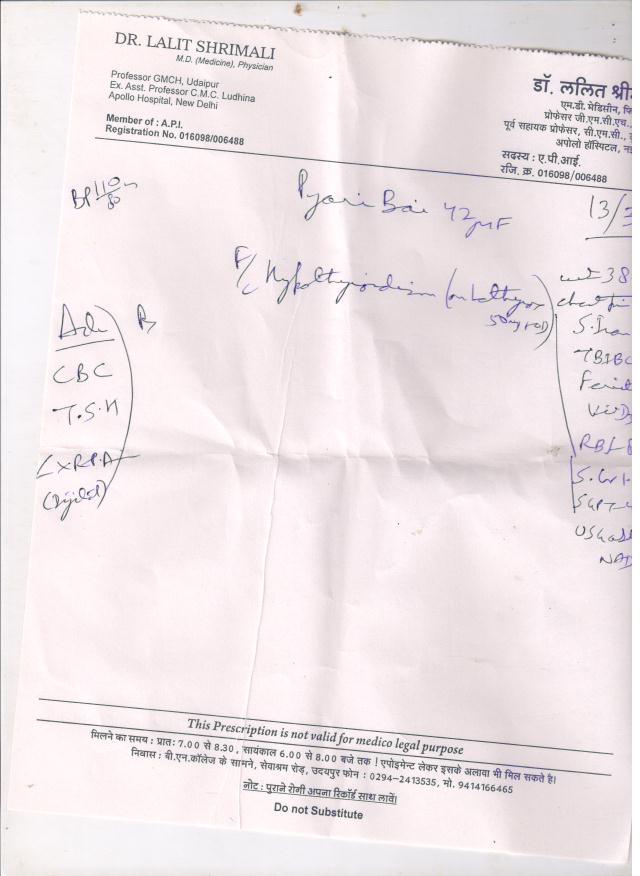 DR. LALIT SHRIMALI
M.D. (Medicine), Physician
Professor GMCH, Udaipur
Ex. Asst. Professor C.M.C. Ludhina
Apollo Hospital, New Delhi
Member of : A.P.I.
Registration No. 016098/006488
डॉ. ललित श्री
एम.डी. मेडिसीन,
प्रोफेसर जी.एम.सी.एच.
पूर्व सहायक प्रोफेसर, सी.एम.सी.,
अपोलो हॉस्पिटल,
सदस्य : ए.पी.आई.
रजि. क्र. 016098/006488
BP 110/80
Pyari Bai 42 F
13/3
Hypothyroidism (on
50
wt 38
Adv
CBC
T.S.H
CXR P.A
(Digital)
R
TBIBC
This Prescription is not valid for medico legal purpose
मिलने का समय : प्रातः 7.00 से 8.30 , सायंकाल 6.00 से 8.00 बजे तक ! एपोइमेन्ट लेकर इसके अलावा भी मिल सकते है।
निवास : बी.एन.कॉलेज के सामने, सेवाश्रम रोड़, उदयपुर फोन : 0294-2413535, मो. 9414166465
नोट : पुराने रोगी अपना रिकॉर्ड साथ लावें।
Do not Substitute